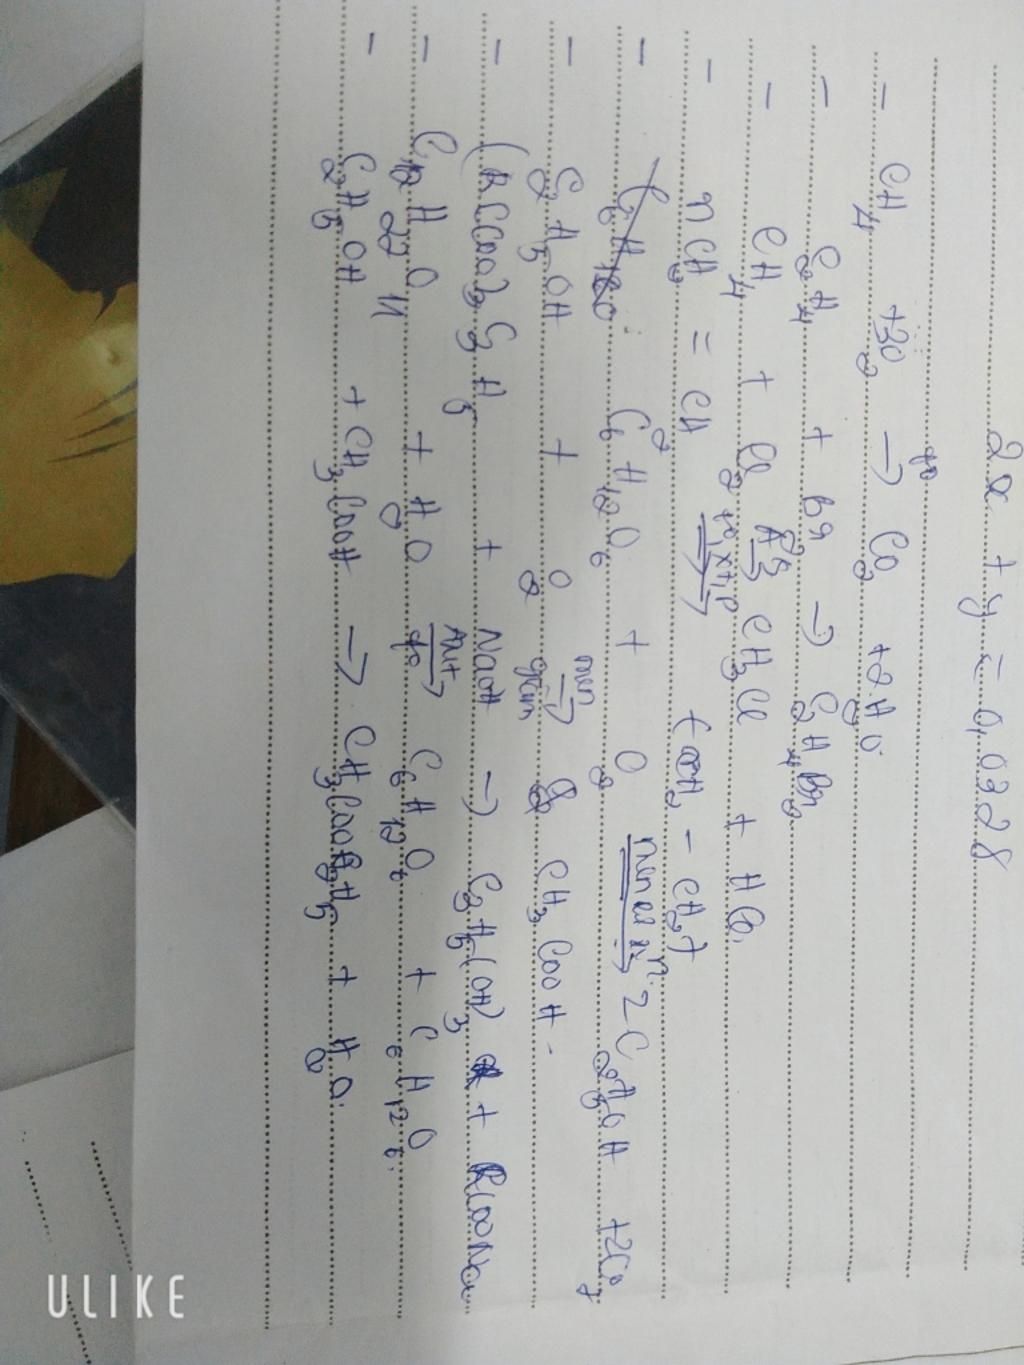 2x + y = 0,0328
- CH4 +3O2 t° → CO2 +2H2O.
- C2H4 + Br → C2H4Br2
- CH4 + Cl2 → CH3Cl + HCl.
- nCH2 = CH2 t°, xt, p → (CH2 - CH2)
- C6H12O6 + O2 men → 2C2H5OH +2CO2
- C2H5OH + O2 men giấm → CH3COOH.
- (RCOO)3C3H5 + NaOH → C3H5(OH)3 + RCOONa
- C12H22O11 + H2O t° → C6H12O6 + C6H12O6.
- C2H5OH + CH3COOH → CH3COOC2H5 + H2O.
ULIKE